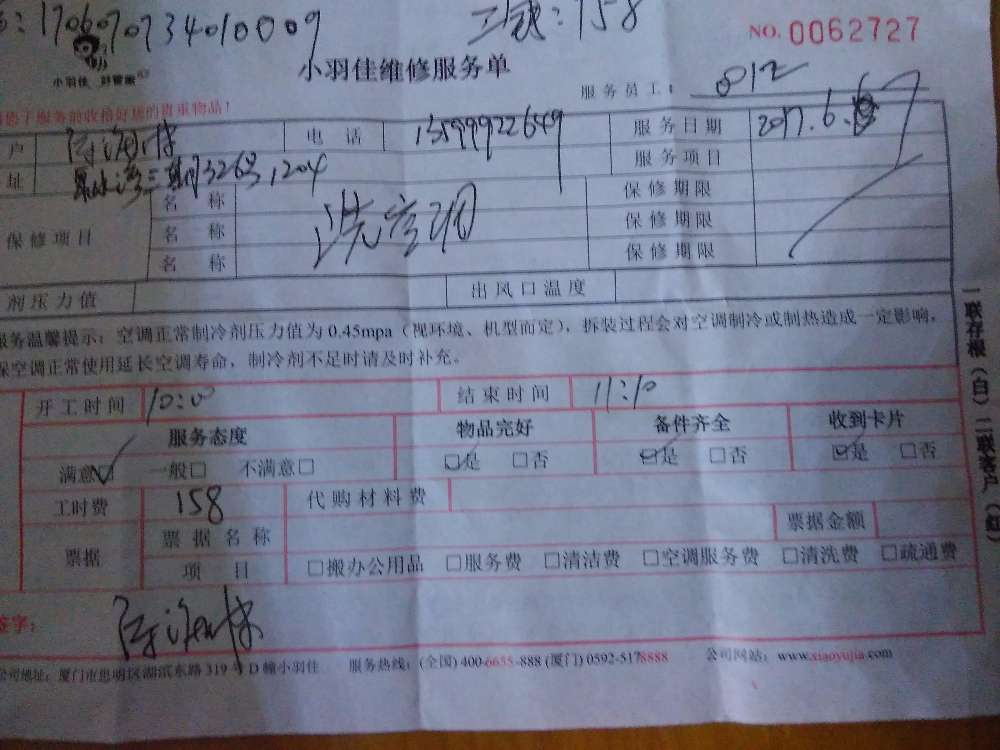 1706070734010009 158
NO. 0062727
小羽佳 好管家
小羽佳维修服务单
服务员工: 012
服务前收拾好您的贵重物品!
户 电话 13599922649 服务日期 2017.6.
址 三期326号,1204 服务项目
保修项目 名称 洗空调 保修期限
名称 保修期限
名称 保修期限
剂压力值 出风口温度
服务温馨提示:空调正常制冷剂压力值为0.45mpa(视环境、机型而定),拆装过程会对空调制冷或制热造成一定影响,
保空调正常使用延长空调寿命,制冷剂不足时请及时补充。
开工时间 10:00 结束时间 11:10
服务态度 物品完好 备件齐全 收到卡片
满意☑ 一般□ 不满意□ ☑是 □否 ☑是 □否 ☑是 □否
工时费 158 代购材料费
票据 票据名称 票据金额
项目 □搬办公用品 □服务费 □清洁费 □空调服务费 □清洗费 □疏通费
签字:
公司地址:厦门市思明区湖滨东路319号D幢小羽佳 服务热线:(全国)400-6655-888 (厦门)0592-5178888 公司网站:www.xiaoyujia.com
一联存根(白)二联客户(红)